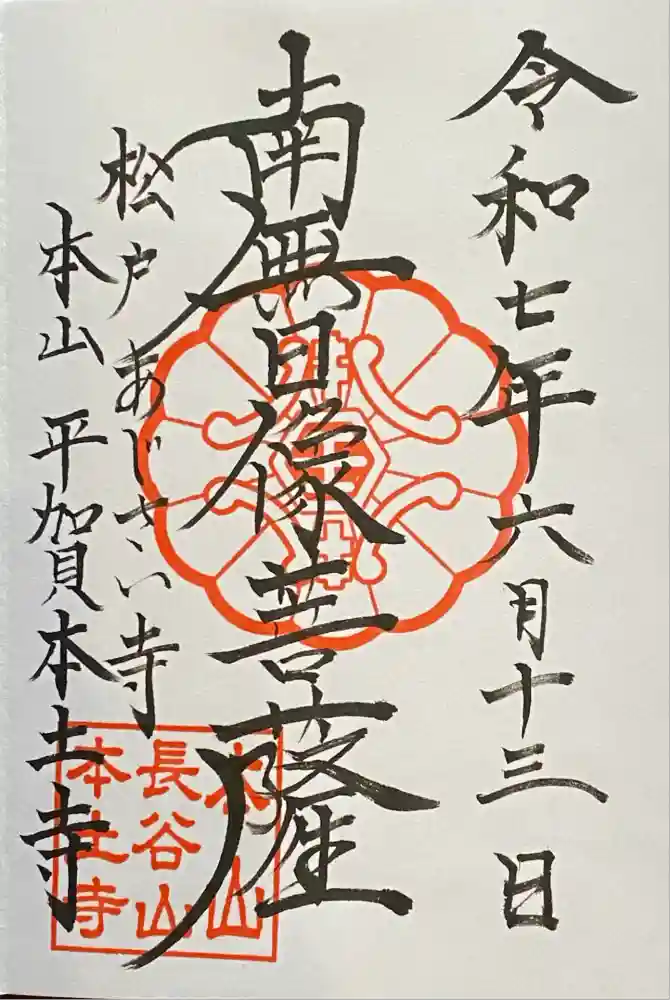 令和七年六月十三日
南無日像菩薩
松戸 あじさい寺
本山 平賀本土寺
本山
長谷山
本土寺